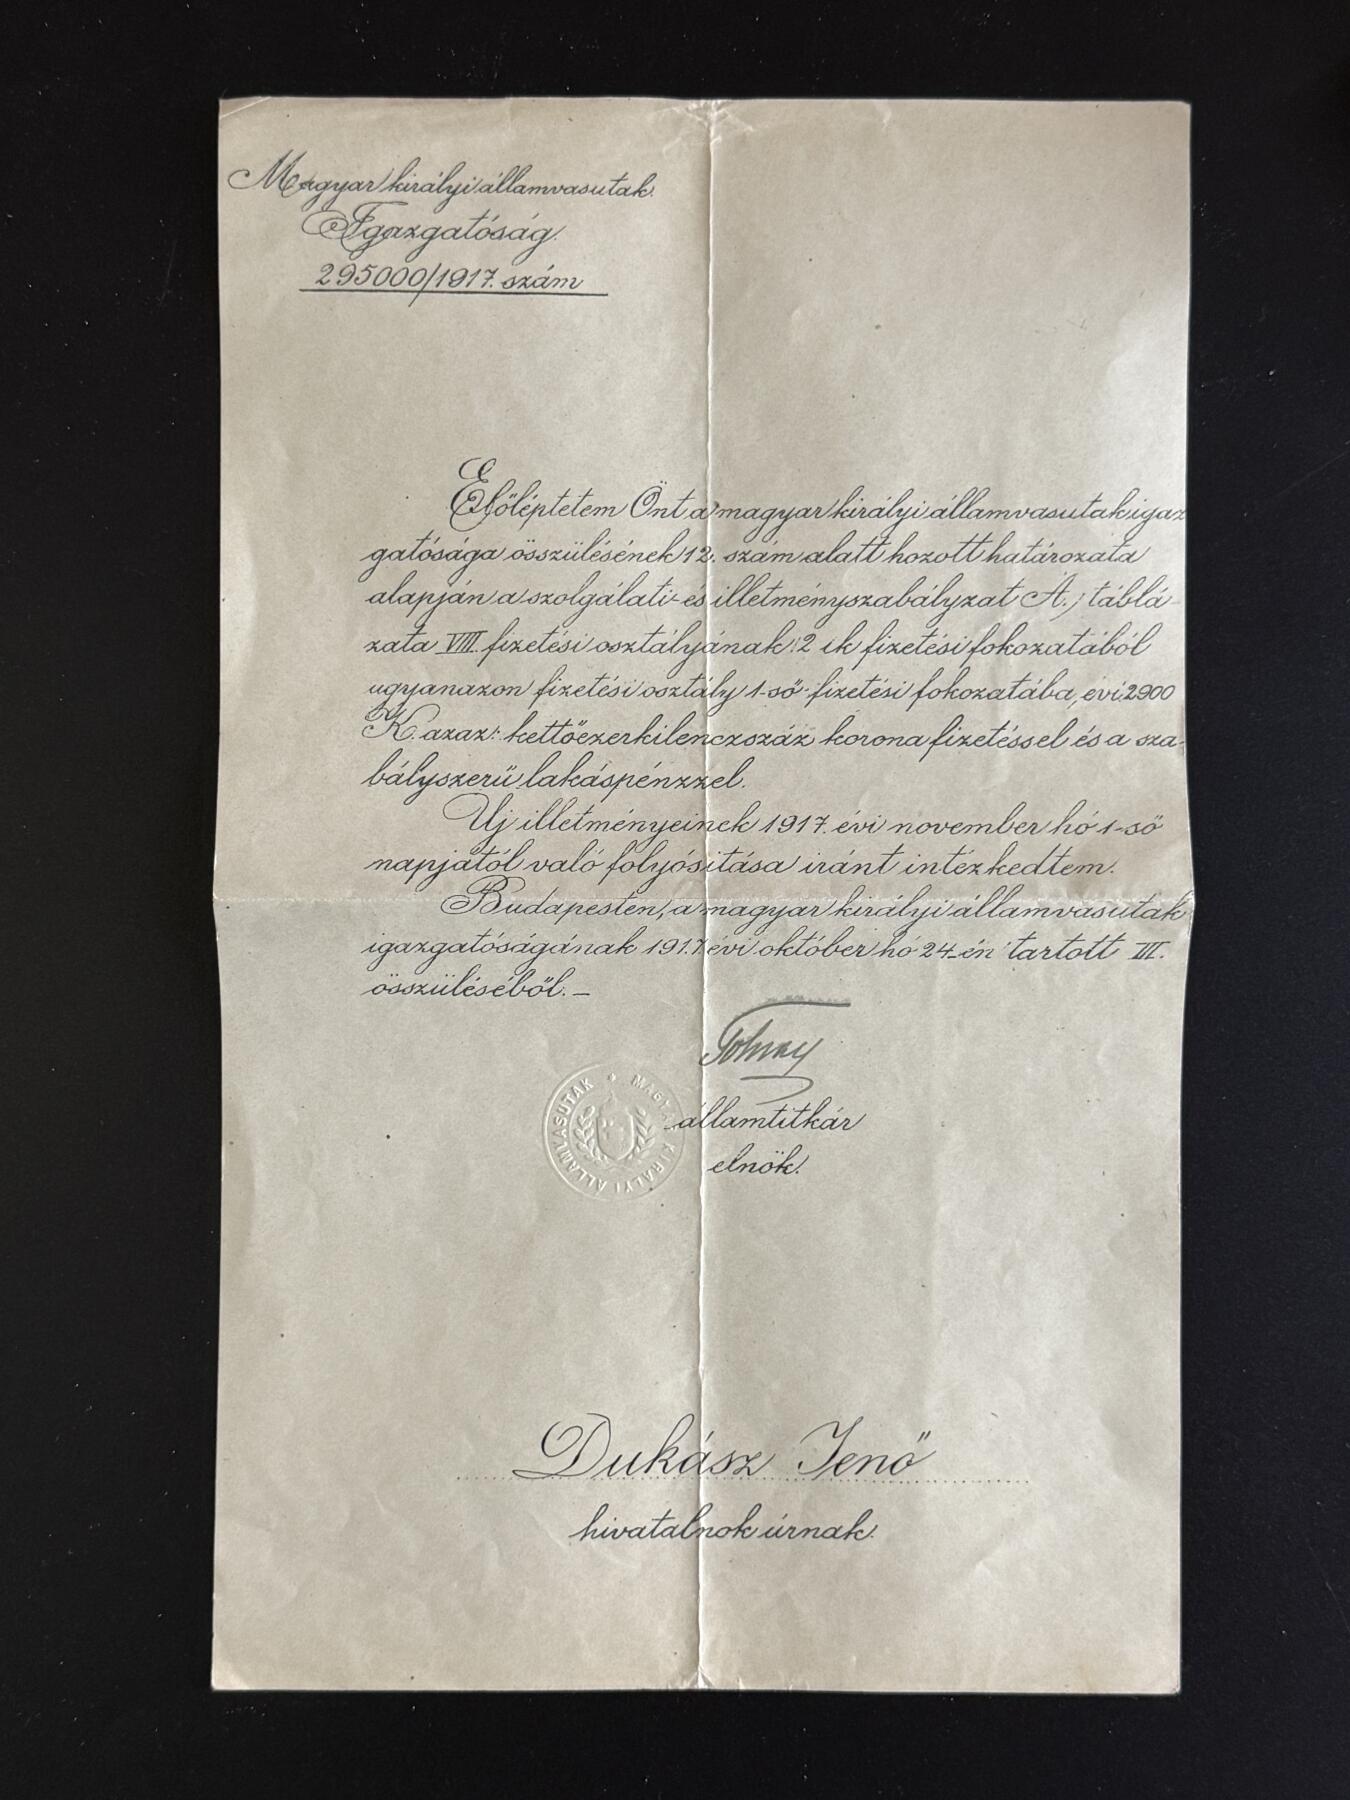 Magyar királyi államvasutak.
Igazgatóság.
295000/1917. szám
Előléptetem Önt a magyar királyi államvasutak igaz
gatósága összülésének 12. szám alatt hozott határozata
alapján a szolgálati- és illetményszabályzat A.) táblá-
zata VIII. fizetési osztályának 2 ik fizetési fokozatából
ugyanazon fizetési osztály 1-ső fizetési fokozatába, évi 2900
K. azaz: kettőezerkilenczszáz korona fizetéssel és a sza-
bályszerű lakáspénzzel.
Uj illetményeinek 1917. évi november hó 1-ső
napjától való folyósitása iránt intézkedtem.
Budapesten, a magyar királyi államvasutak
igazgatóságának 1917. évi október hó 24-én tartott III.
összüléséből. –
Tolnay
államtitkár
elnök.
MAGYAR KIRÁLYI ÁLLAMVASUTAK
Dukász Jenő
hivatalnok úrnak.